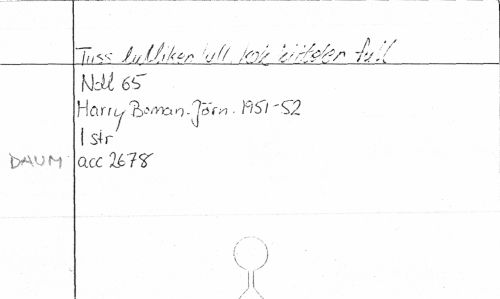 Tuss lulliken lull, kok kittelen full
Ndl 65
Harry Boman. Jörn. 1951-52
1 str
DAUM acc 2678